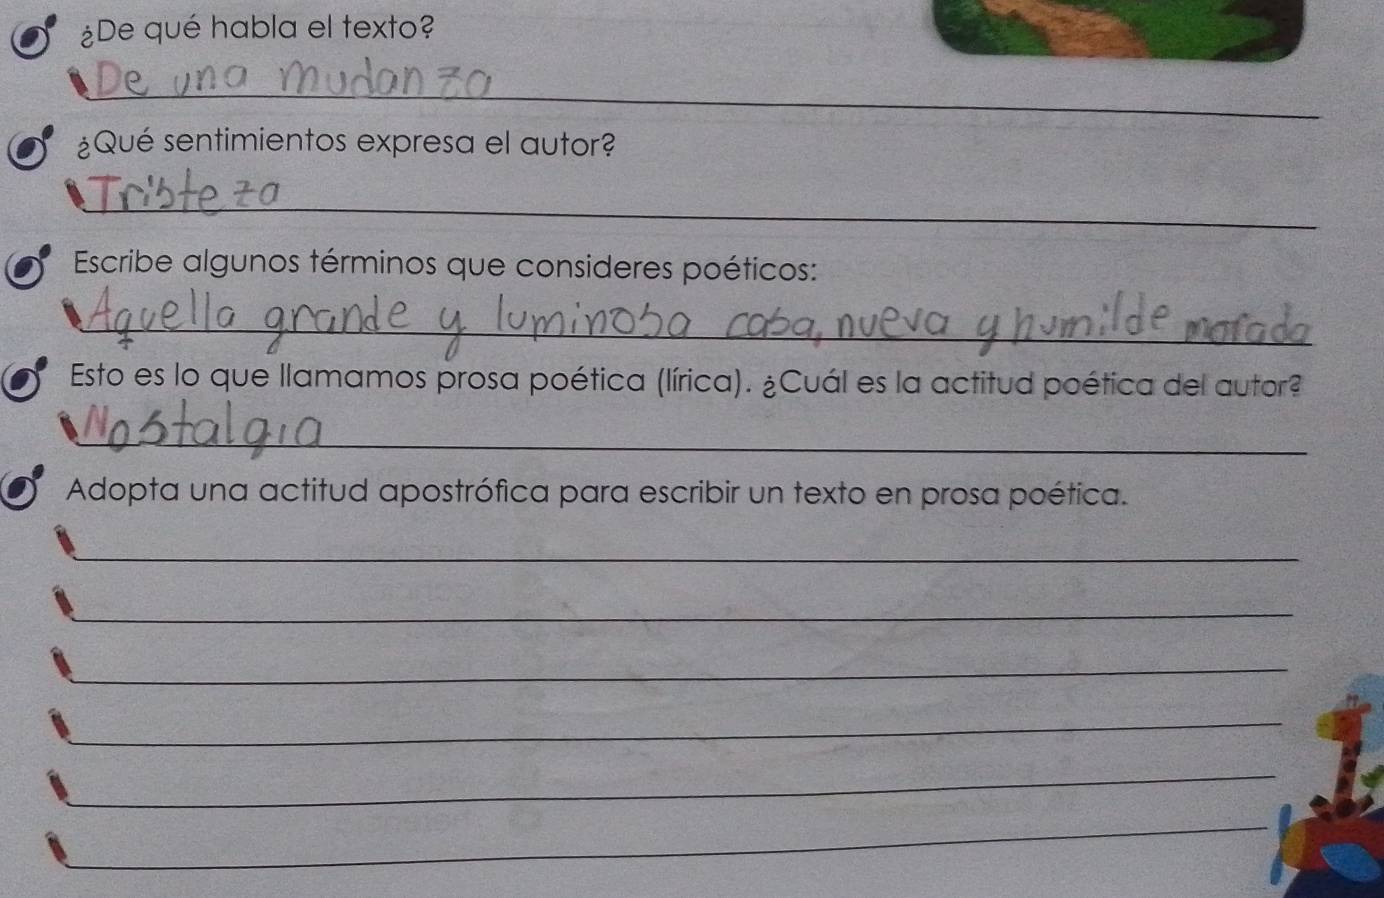 ¿De qué habla el texto?
De una mudanza
¿Qué sentimientos expresa el autor?
Tristeza
Escribe algunos términos que consideres poéticos:
Aquella grande y luminosa casa, nueva y humilde morada
Esto es lo que llamamos prosa poética (lírica). ¿Cuál es la actitud poética del autor?
Nostalgia
Adopta una actitud apostrófica para escribir un texto en prosa poética.